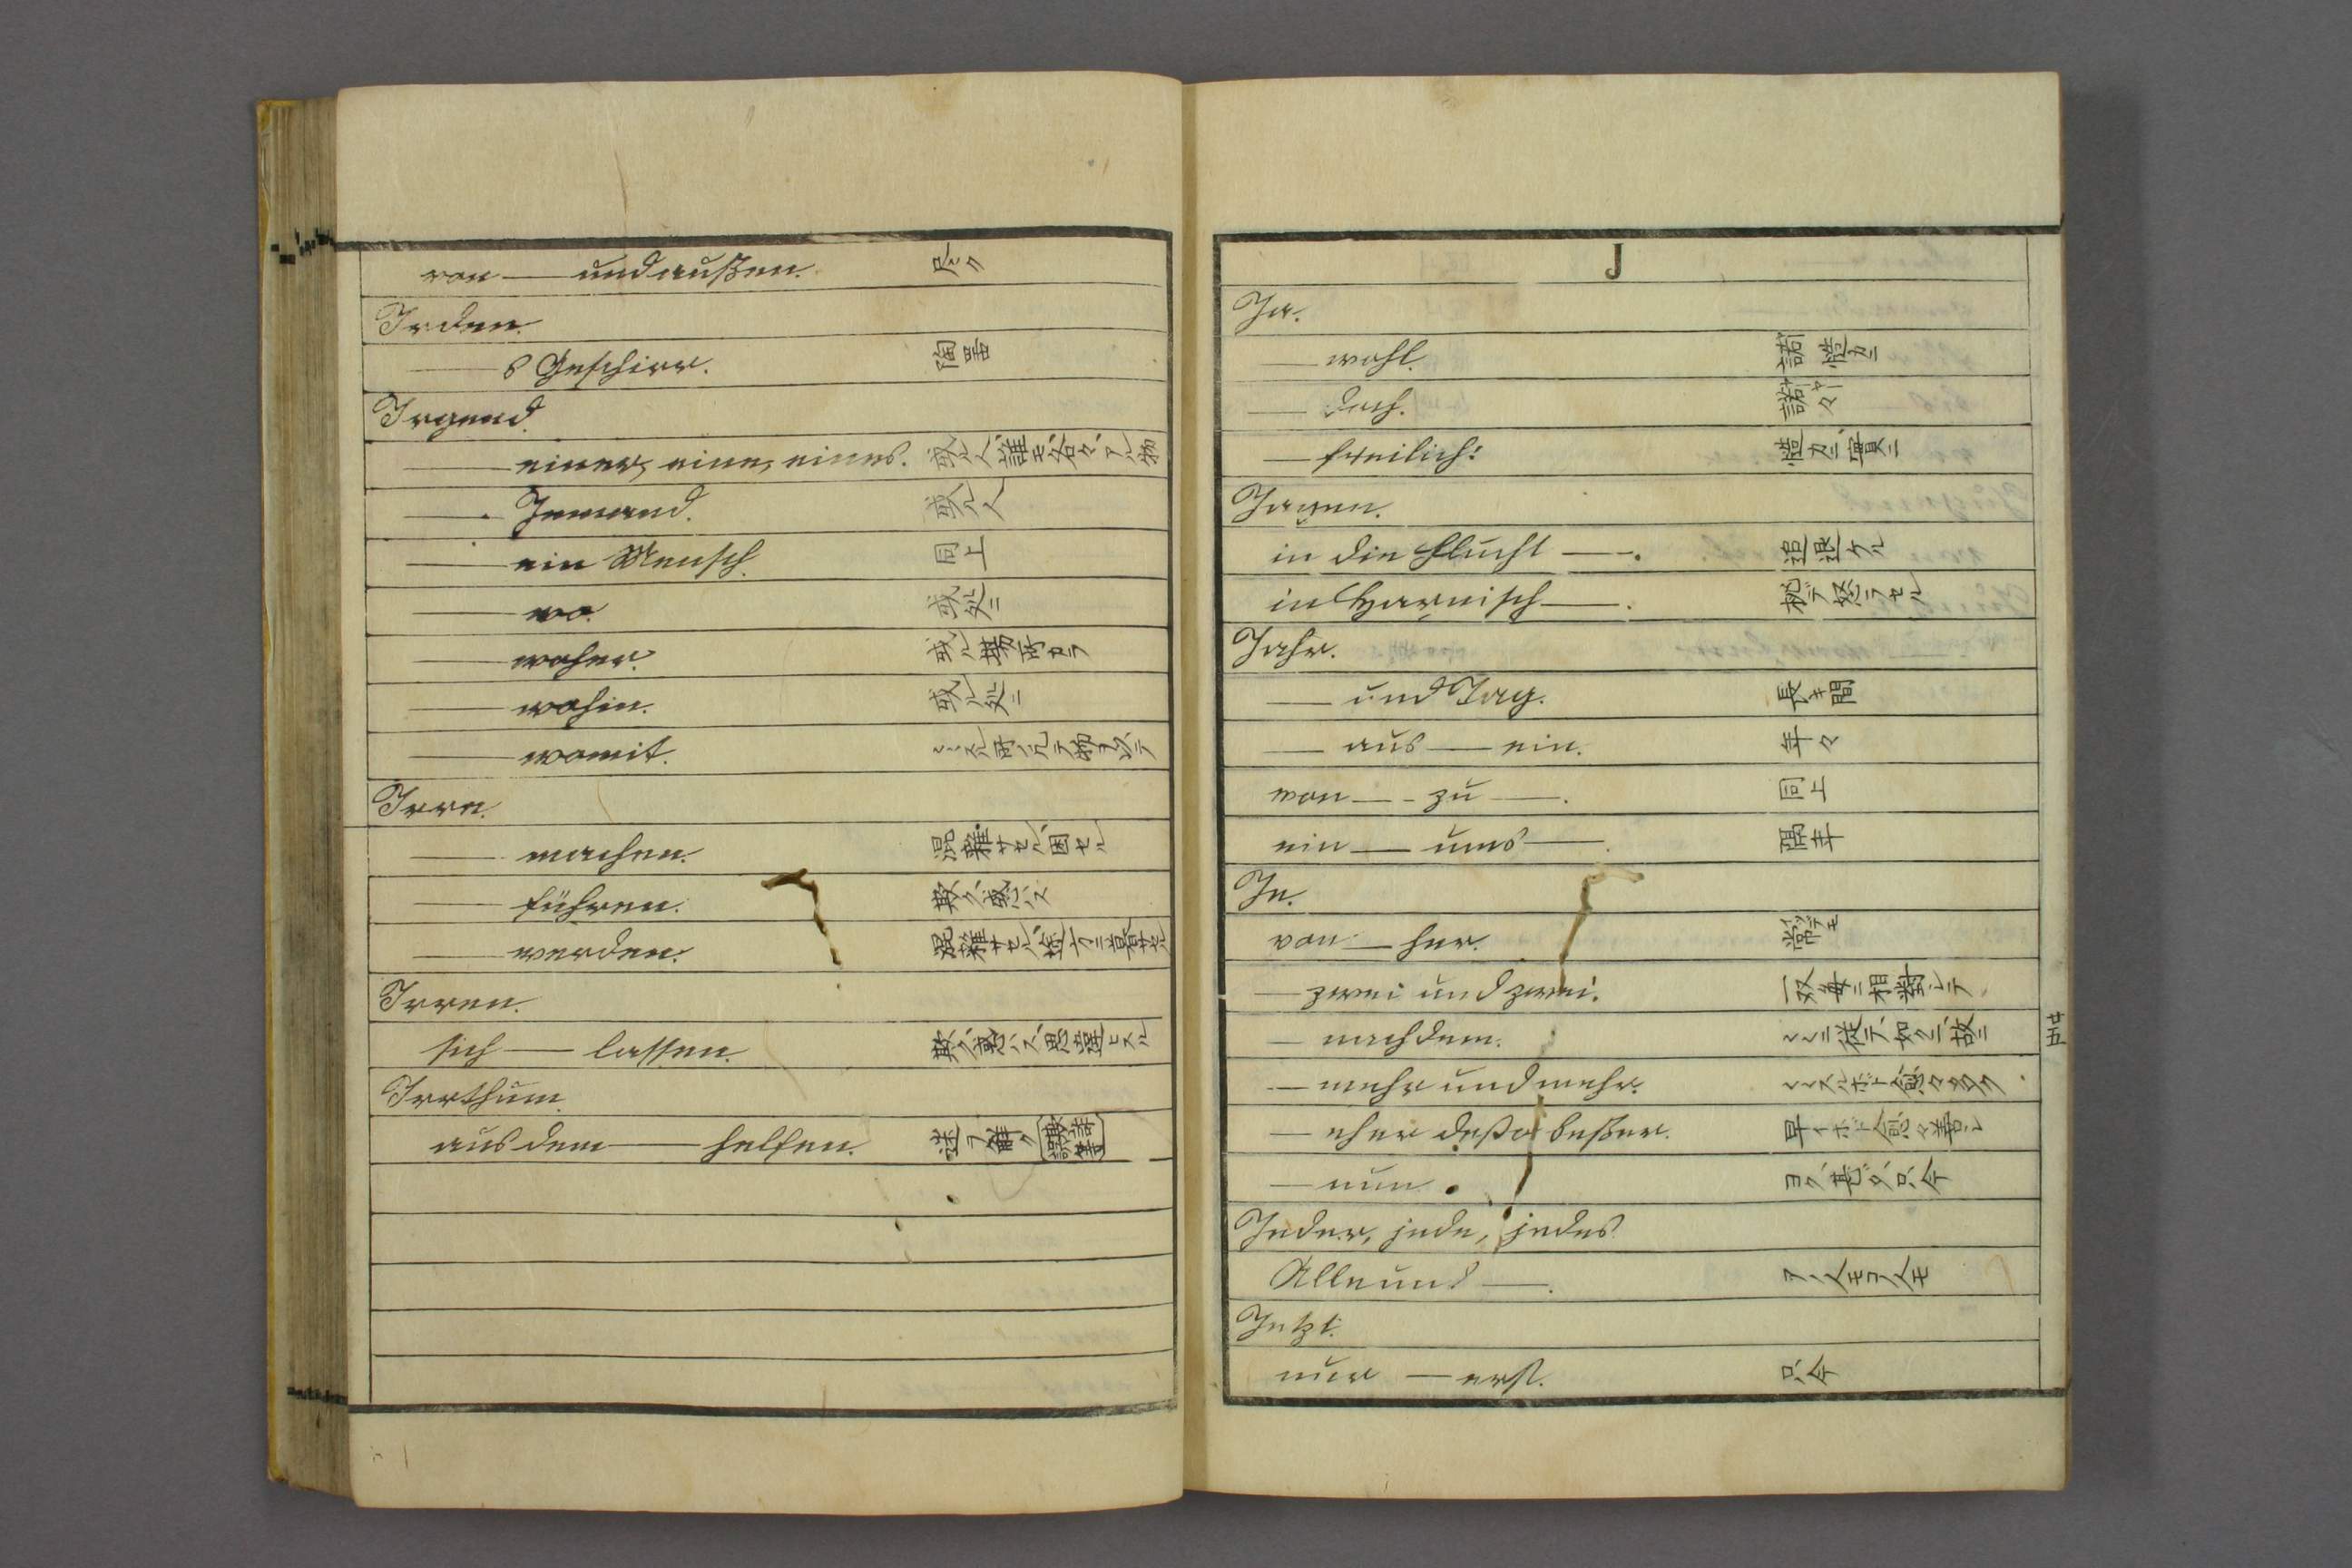 von — und außen. 尽ク
Irden.
— s Geschirr. 陶器
Irgend.
— einer, eine, eines. 或ル人、誰モ、各々、アル物
— Jemand. 或ル人
— ein Mensch. 同上
— wo. 或処ニ
— woher. 或ル場所カラ
— wohin. 或ル処ニ
— womit.
Irre.
— machen. 混雑サセル、困セル
— führen. 欺ク、惑ハス
— werden.
Irren.
sich — lassen.
Irrthum.
aus dem — helfen. 迷ヲ解ク
J
Ja.
— wohl. 諾、慥カニ
— doch. 諾々
— freilich: 慥カニ、實ニ
Jagen.
in die Flucht —. 追退ケル
in Harnisch —. 怒ラセル
Jahr.
— und Tag. 長キ間
— aus — ein. 年々
von — zu —. 同上
ein — ums —. 隔年
Je.
von — her. 常ツデモ
— zwei und zwei. 一双毎ニ相對シテ
— nachdem. 〻〻ニ従テ、如クニ、故ニ
— mehr und mehr. 〻〻スルホド愈々多ク
— eher desto beßer. 早イホド愈々善シ
— nun. ヨク、甚ダ、只今
Jeder, jede, jedes
Alle und —. アノ人モコノ人モ
Jetzt.
nur — erst. 只今
四十五